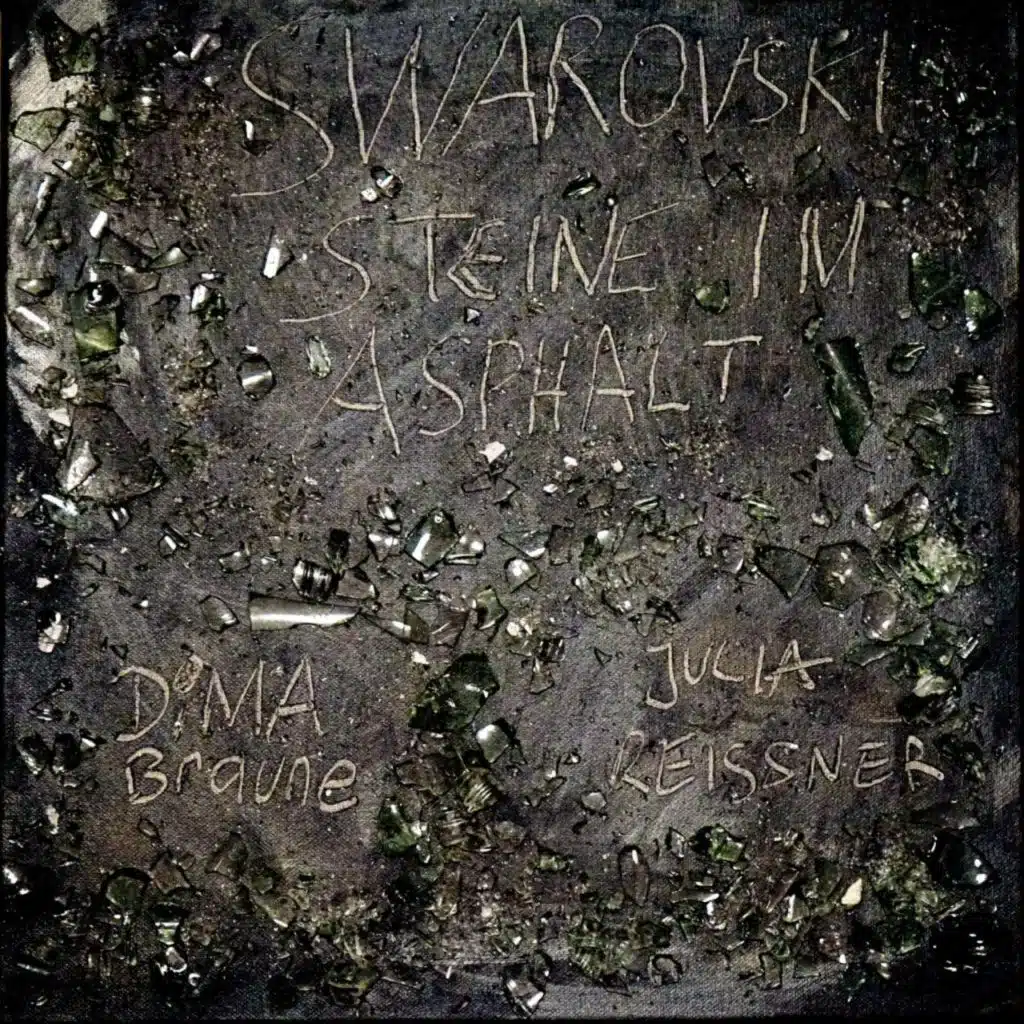 SWAROVSKI
STEINE IM
ASPHALT
DIMA
Braune
JULIA
REISSNER